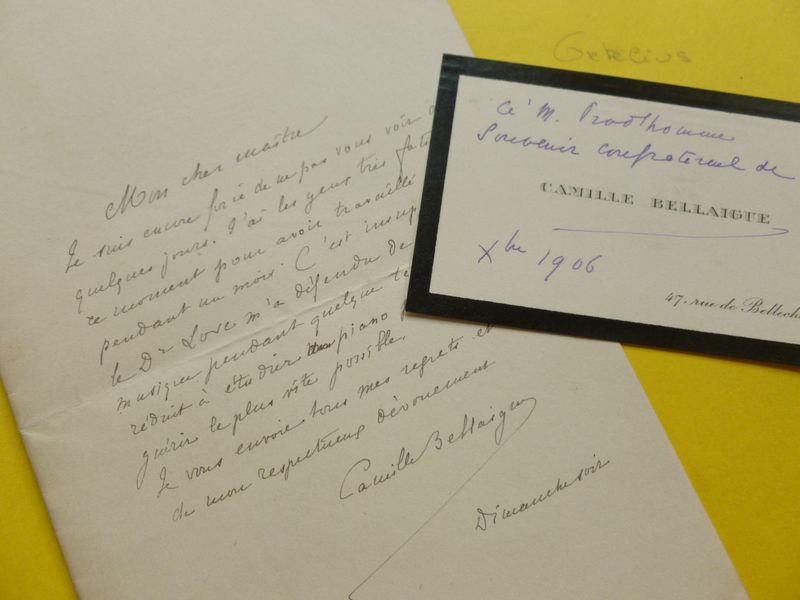 Mon cher maître
Je suis encore forcé de ne pas vous voir d
quelques jours. J'ai les yeux très fati
ce moment pour avoir travaillé
pendant un mois. C'est insup
le Dr Love m'a défendu de
musique pendant quelque te
réduit à étudier piano
guérir le plus vite possible.
Je vous envoie tous mes regrets et
de mon respectueux dévouement
Camille Bellaigue
Dimanche soir
à M. Prodhomme
Souvenir confraternel de
CAMILLE BELLAIGUE
Xbre 1906
47, rue de Bellech